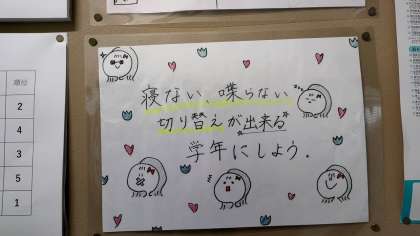 寝ない、喋らない
切り替えが"出来る"
学年にしよう.
順位
2
4
3
5
1